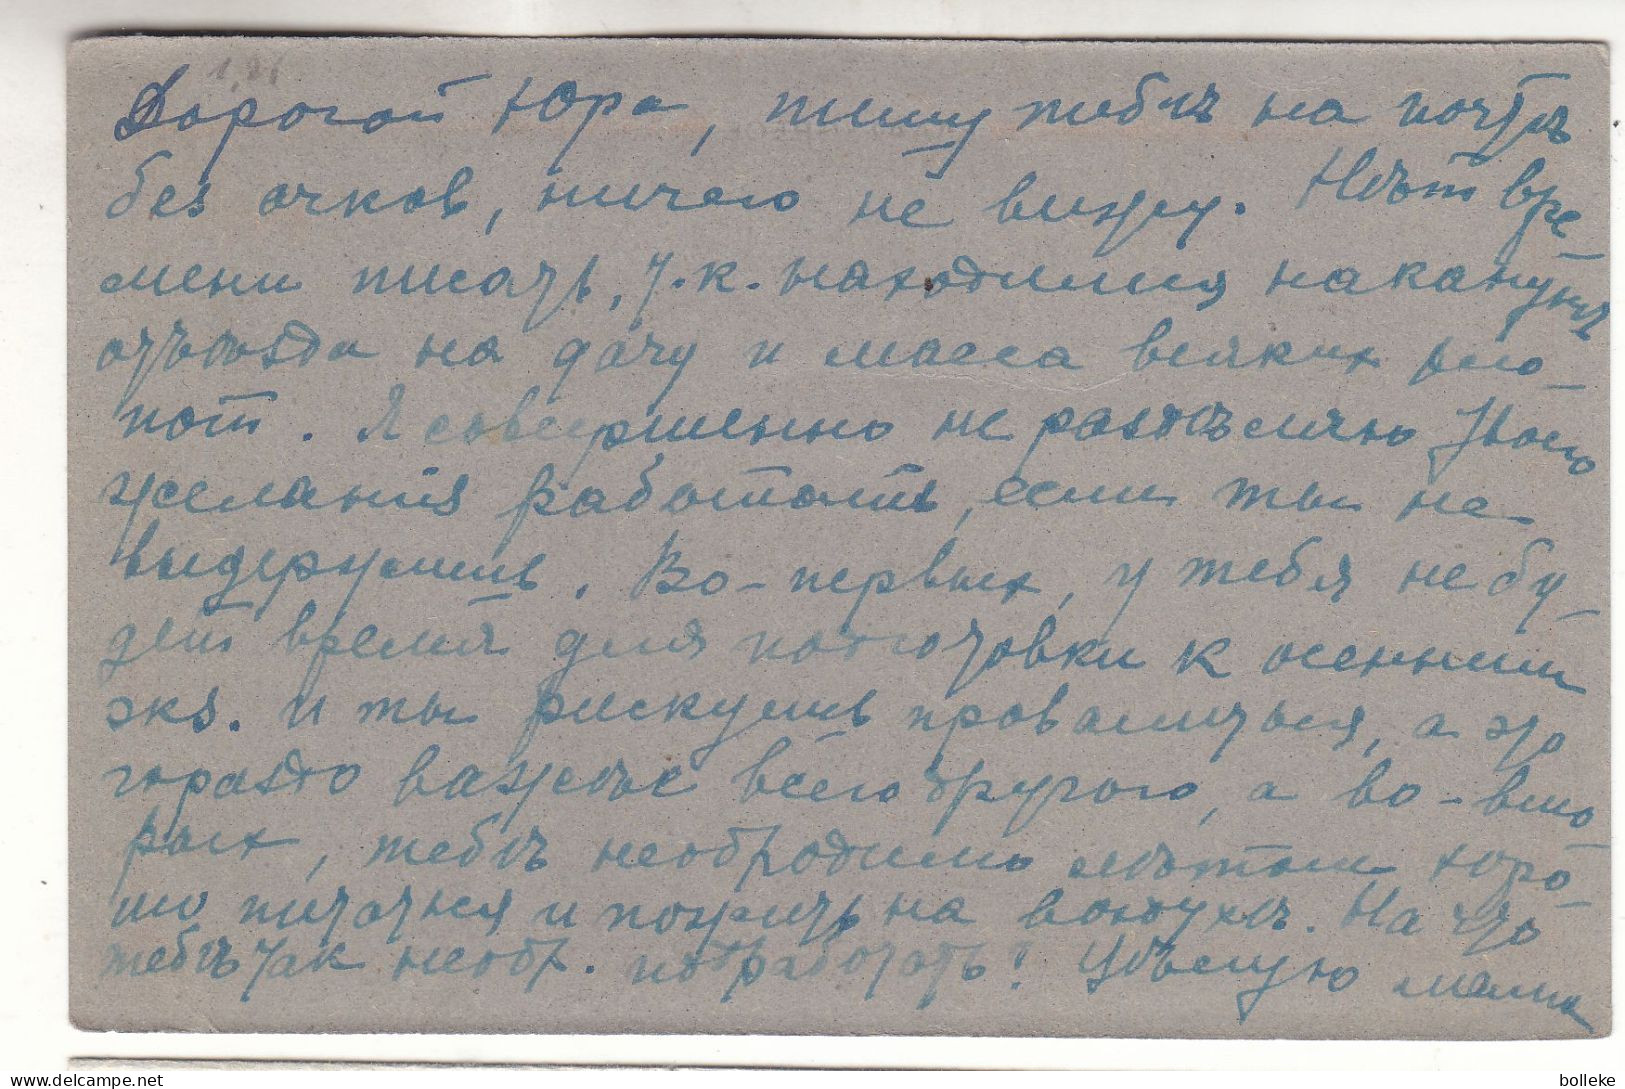 Дорогой Юра, пишу тебѣ на почтѣ
без очков, ничего не вижу. Нѣт вре-
мени писать, т.к. находимся наканунѣ
отъѣзда на дачу и масса всяких хло-
пот. Я совершенно не раздѣляю Твоего
желанія работать, если ты не
выдержишь. Во-первых, у тебя не бу-
дет время для подготовки к осенним
экз. и ты рискуешь провалиться, а это
гораздо важнѣе всего другого, а во-вто
рых, тебѣ необходимо лѣтом хоро-
шо питаться и пожить на воздухѣ. На что
тебѣ так необх. подработать? Цѣлую мама
bolleke